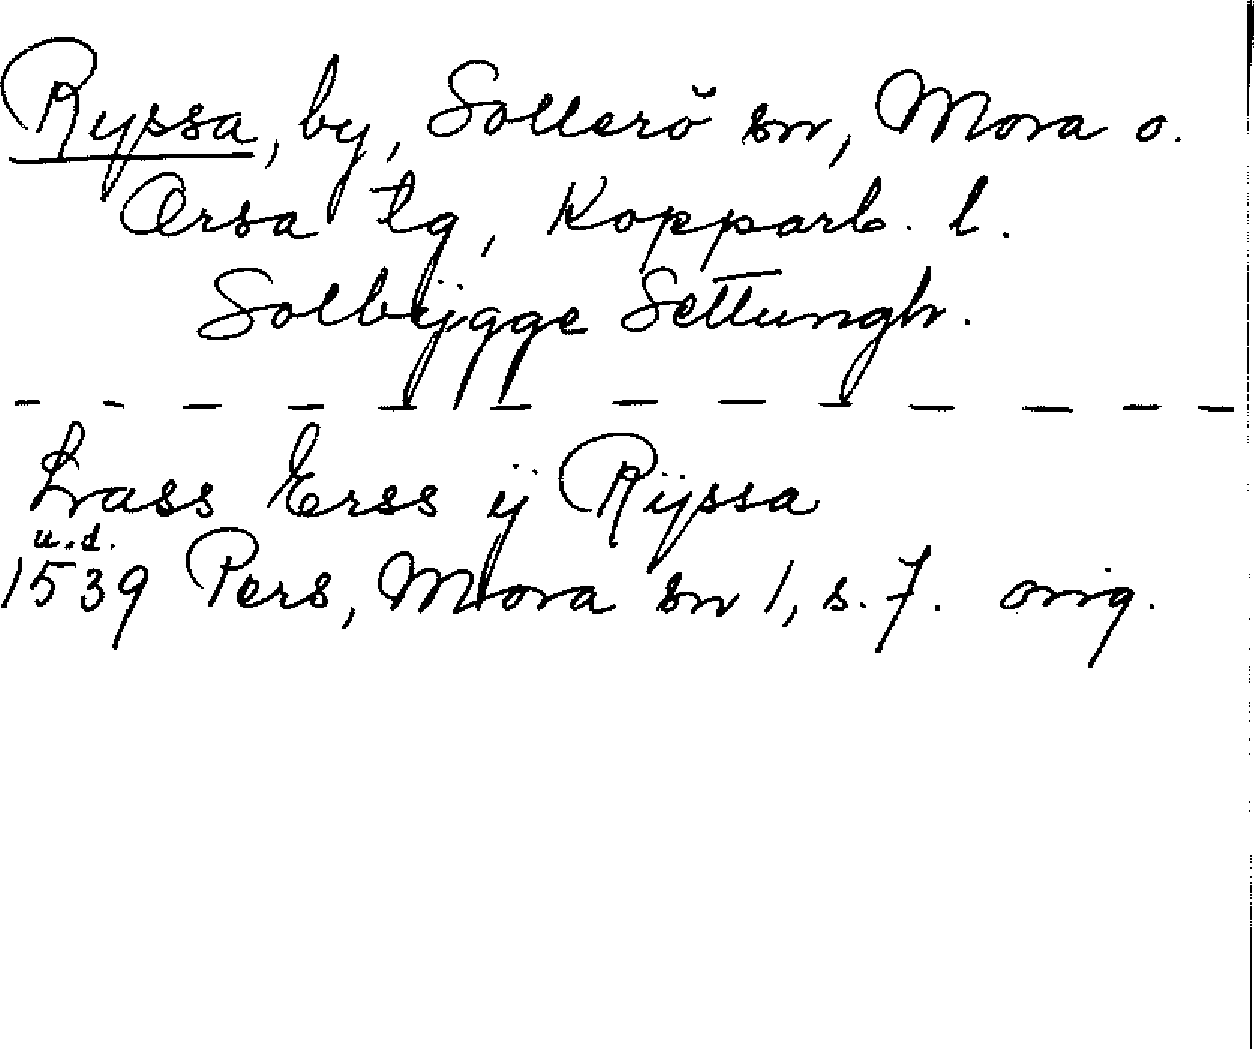 Ryssa, by, Sollerö sn, Mora o.
Orsa tg, Kopparb. l.
Solbÿgge Settungh.
Lrass Erss ÿ Rÿssa
u.d.
1539 Pers, Mora sn 1, s. 7. orig.